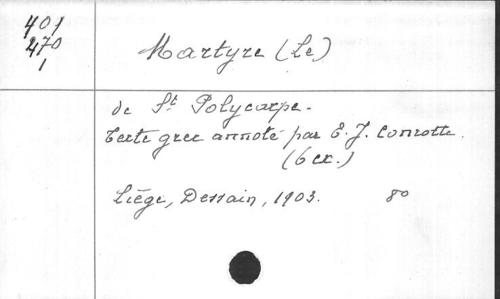 401
470
1
Martyre (Le)
de St Polycarpe.
Texte grec annoté par E. J. Conrotte.
(6 ex.)
Liège, Dessain, 1903. 8o